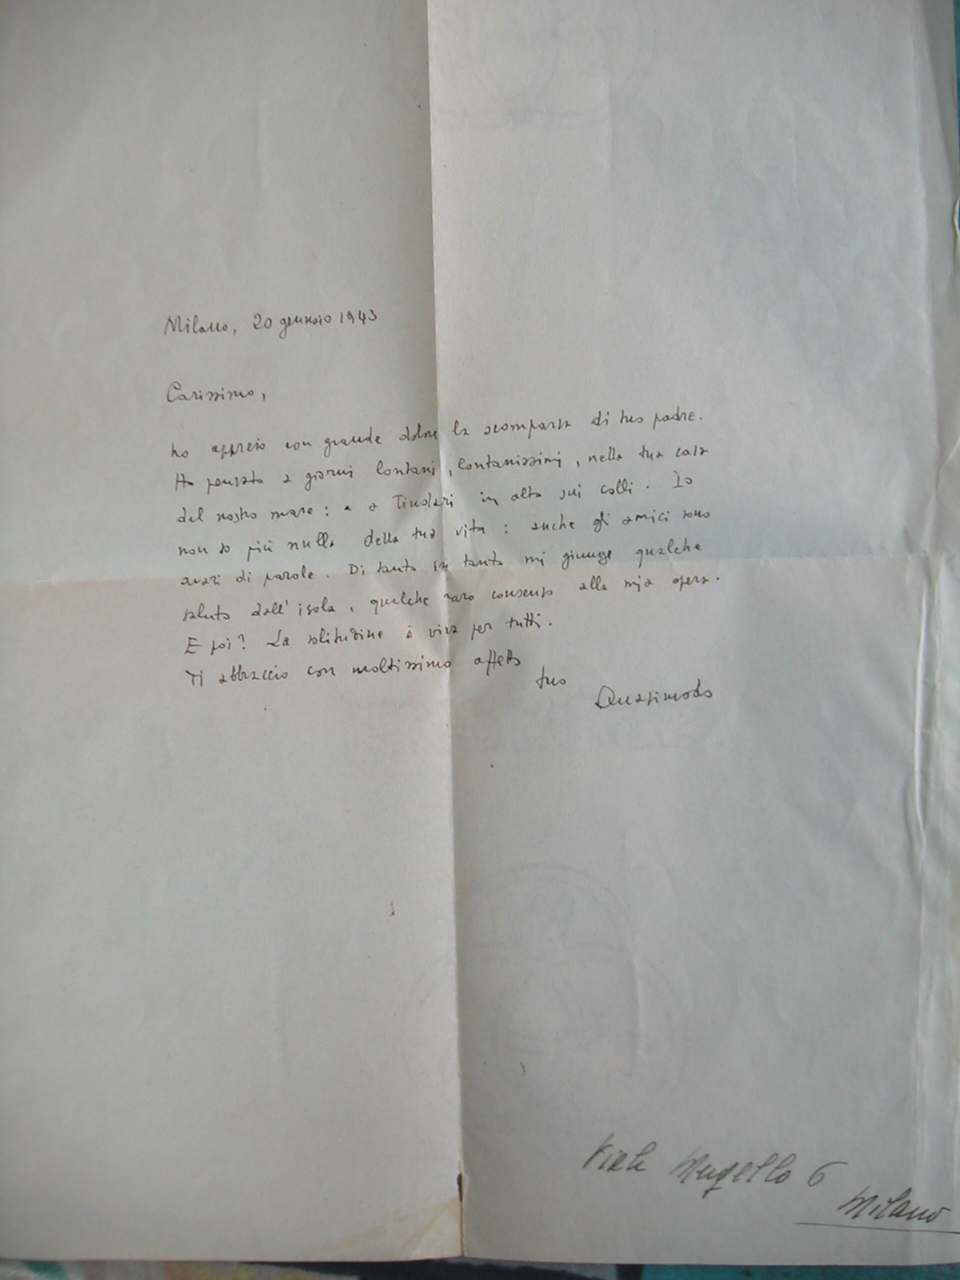 Milano, 20 gennaio 1943
Carissimo,
ho appreso con grande dolore la scomparsa di tuo padre.
Ho pensato a giorni lontani, lontanissimi, nella tua casa
del nostro mare: e a Tindari in alto sui colli. Io
non so più nulla della tua vita: anche gli amici sono
avari di parole. Di tanto in tanto mi giunge qualche
saluto dall'isola, qualche raro consenso alla mia opera.
E poi? La solitudine è viva per tutti.
Ti abbraccio con moltissimo affetto
tuo
Quasimodo
Viale Mugello 6
Milano